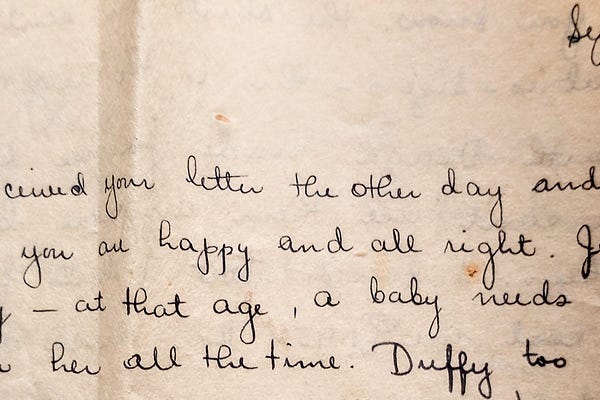 Se
ceived your letter the other day and
you all happy and all right. J
y – at that age, a baby needs
her all the time. Duffy too